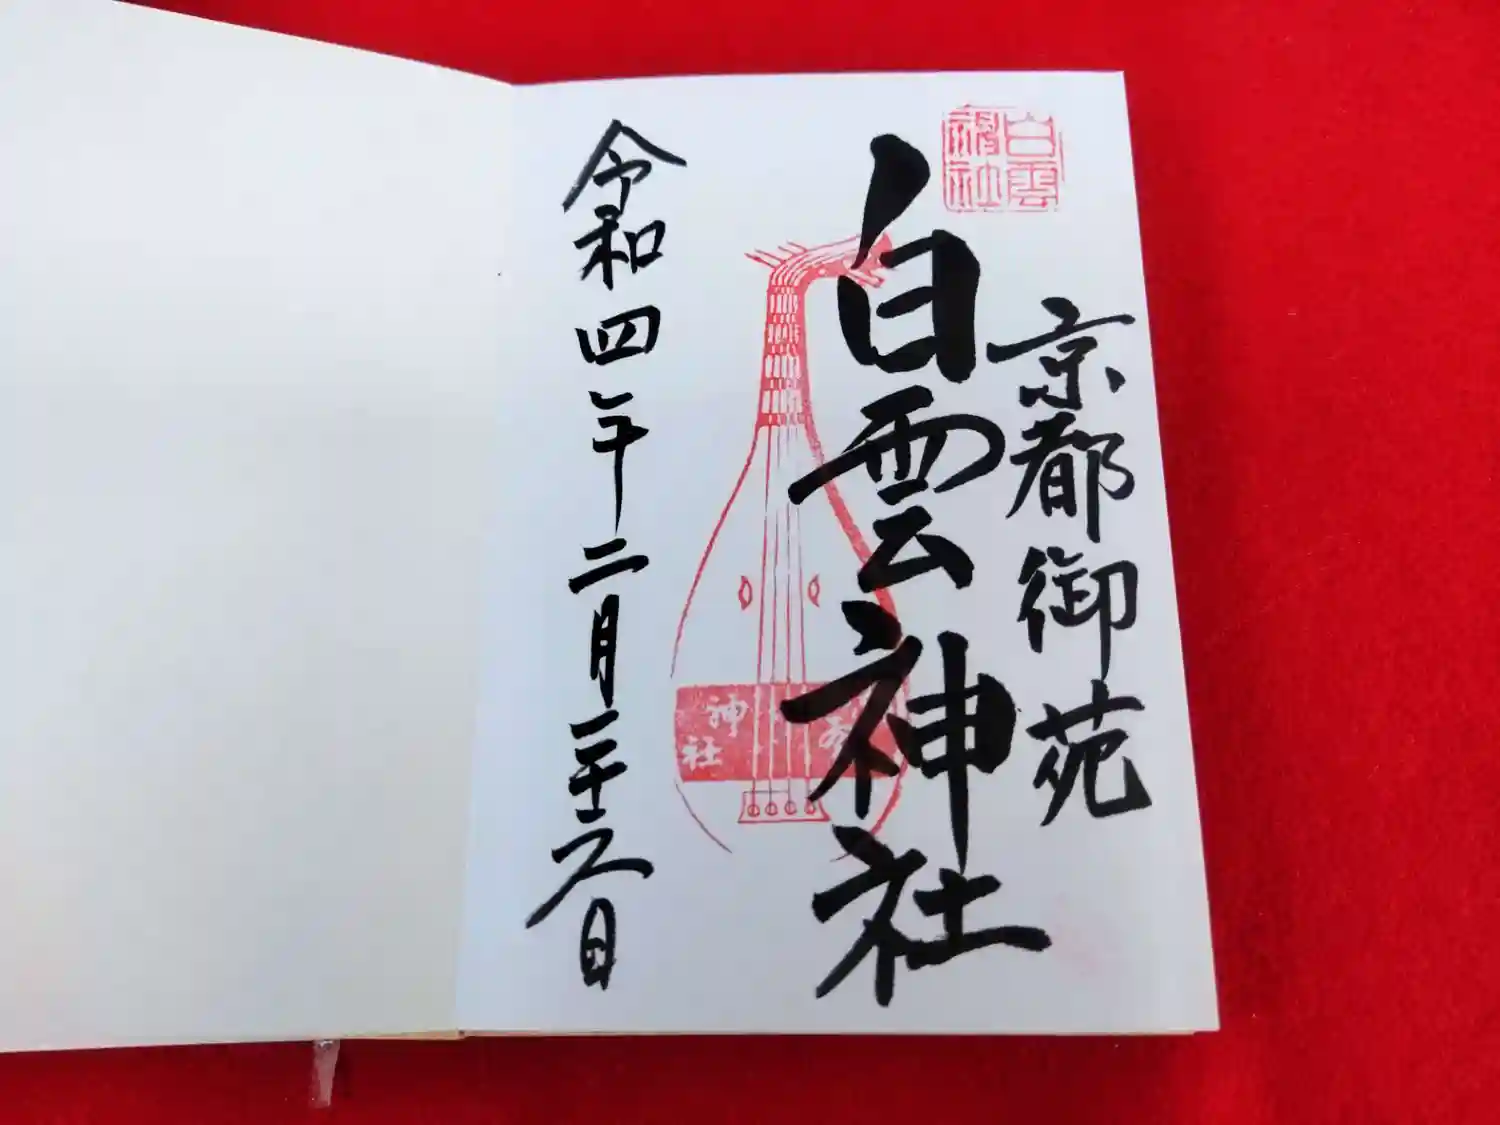 白雲神社
京都御苑
白雲神社
神社
令和四年二月二十六日